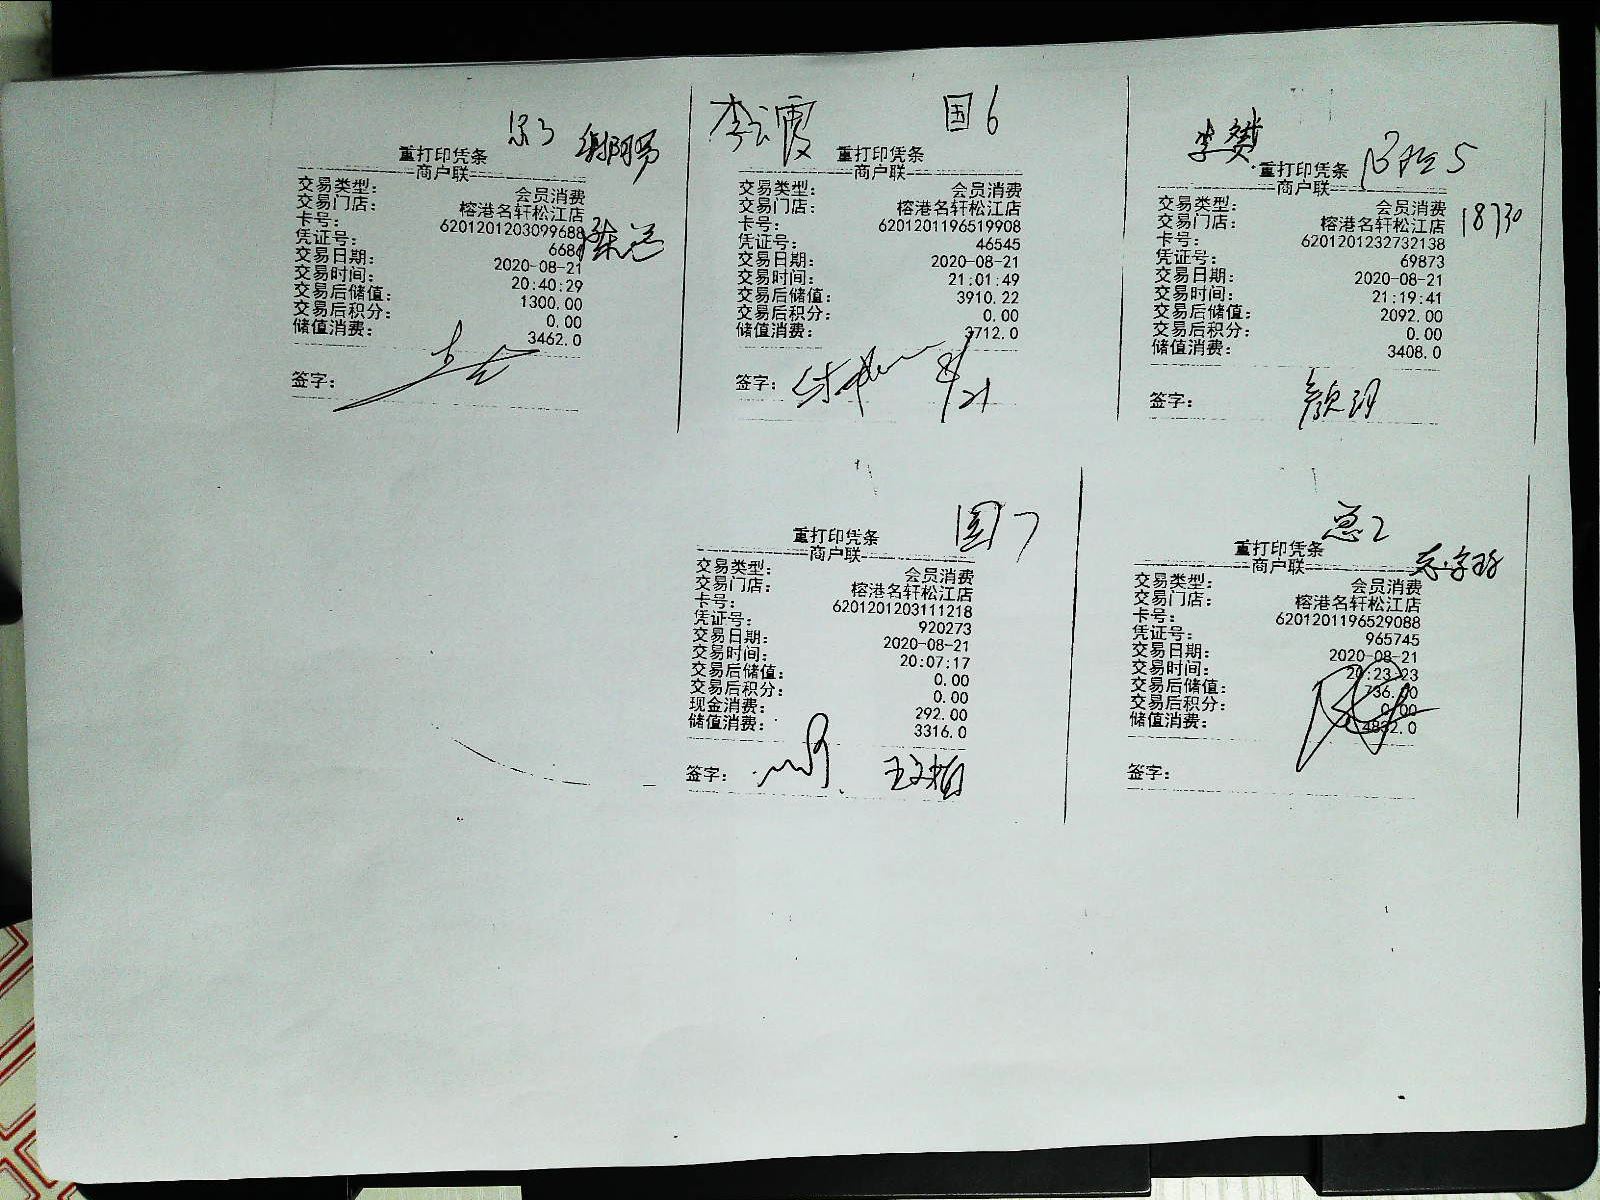 重打印凭条
商户联
交易类型： 会员消费
交易门店： 榕港名轩松江店
卡号： 6201201203099688
凭证号：
交易日期： 2020-08-21
交易时间： 20:40:29
交易后储值： 1300.00
交易后积分： 0.00
储值消费： 3462.0
签字：
李云霞 国6
重打印凭条
商户联
交易类型： 会员消费
交易门店： 榕港名轩松江店
卡号： 6201201196519908
凭证号： 46545
交易日期： 2020-08-21
交易时间： 21:01:49
交易后储值： 3910.22
交易后积分： 0.00
储值消费： 3712.0
签字： 8/21
重打印凭条
商户联
交易类型： 会员消费
交易门店： 榕港名轩松江店 18730
卡号： 6201201232732138
凭证号： 69873
交易日期： 2020-08-21
交易时间： 21:19:41
交易后储值： 2092.00
交易后积分： 0.00
储值消费： 3408.0
签字：
国7
重打印凭条
商户联
交易类型： 会员消费
交易门店： 榕港名轩松江店
卡号： 6201201203111218
凭证号： 920273
交易日期： 2020-08-21
交易时间： 20:07:17
交易后储值： 0.00
交易后积分： 0.00
现金消费： 292.00
储值消费： 3316.0
签字：
重打印凭条
商户联
交易类型： 会员消费
交易门店： 榕港名轩松江店
卡号： 6201201196529088
凭证号： 965745
交易日期： 2020-08-21
交易时间： 20:23:23
交易后储值： 736.00
交易后积分： 0.00
储值消费： 4832.0
签字：